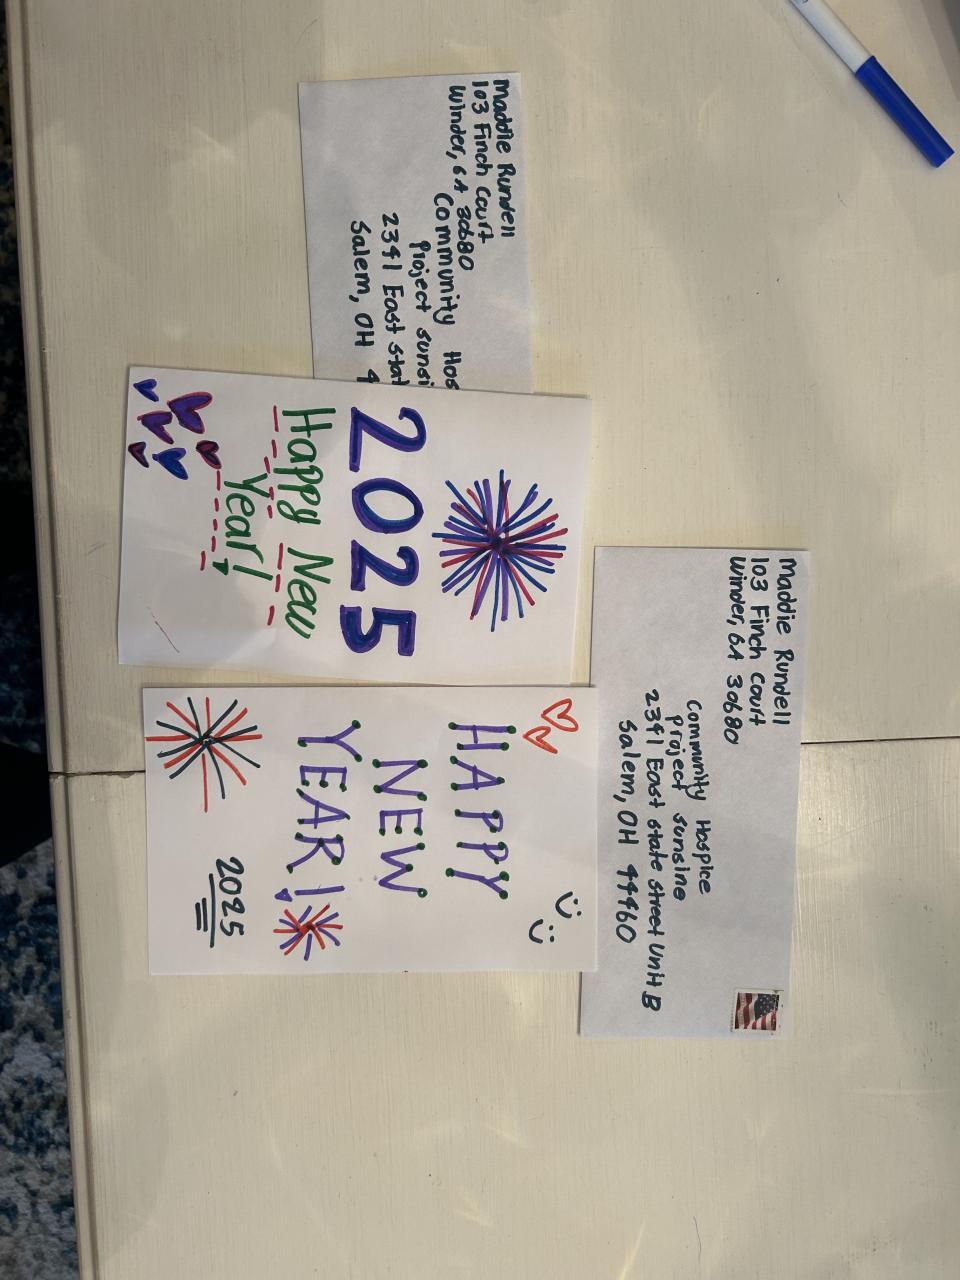 Maddie Rundell
103 Finch Court
Winder, GA 30680
Community Hos
Project sunsi
2341 East stat
Salem, OH 4
2025
Happy New
Year!
Maddie Rundell
103 Finch Court
Winder, GA 30680
Community Hospice
Project sunsine
2341 East state street Unit B
Salem, OH 44460
HAPPY
NEW
YEAR!
2025